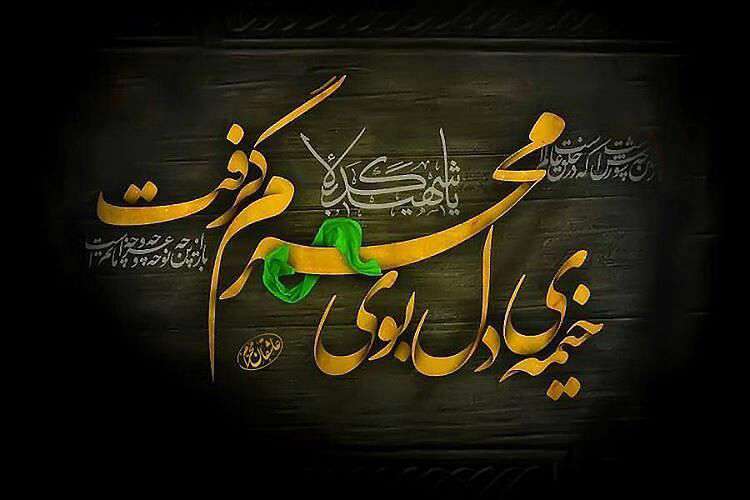 باز این چه شورش است که در خلق عالم است
یا شهید کربلا
خیمه ی دل بوی محرم گرفت
باز این چه نوحه و چه عزا و چه ماتم است